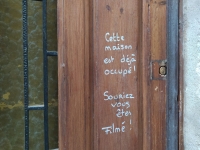 Cette
maison
est déjà
occupé !
Souriez
vous
êtes
Filmé !